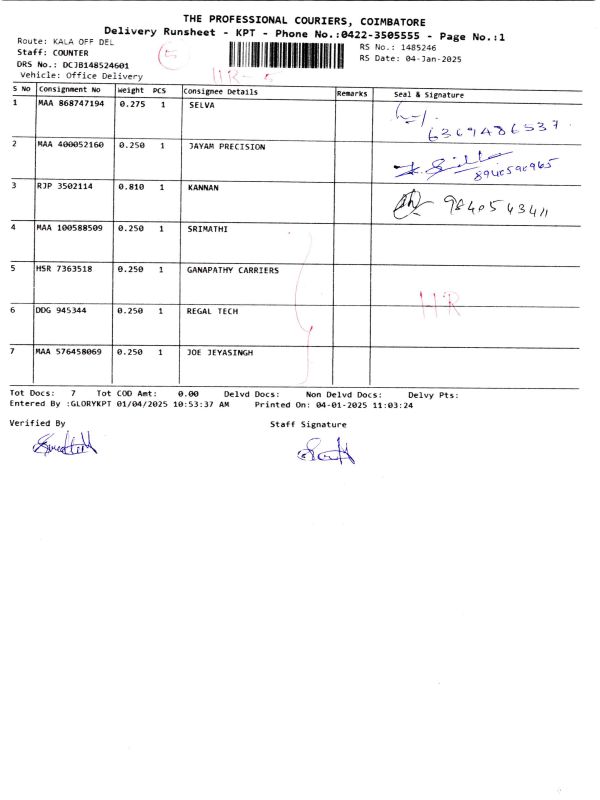 THE PROFESSIONAL COURIERS, COIMBATORE
Delivery Runsheet - KPT - Phone No.:0422-3505555 - Page No.:1
Route: KALA OFF DEL
Staff: COUNTER
DRS No.: DCJB148524601
Vehicle: Office Delivery
5
HR - 5
RS No.: 1485246
RS Date: 04-Jan-2025
S No Consignment No Weight PCS Consignee Details Remarks Seal & Signature
1 MAA 868747194 0.275 1 SELVA
6369486537
2 MAA 400052160 0.250 1 JAYAM PRECISION
8940590965
3 RJP 3502114 0.810 1 KANNAN
9840543411
4 MAA 100588509 0.250 1 SRIMATHI
5 HSR 7363518 0.250 1 GANAPATHY CARRIERS
HR
6 DDG 945344 0.250 1 REGAL TECH
7 MAA 576458069 0.250 1 JOE JEYASINGH
Tot Docs: 7 Tot COD Amt: 0.00 Delvd Docs: Non Delvd Docs: Delvy Pts:
Entered By :GLORYKPT 01/04/2025 10:53:37 AM Printed On: 04-01-2025 11:03:24
Verified By Staff Signature